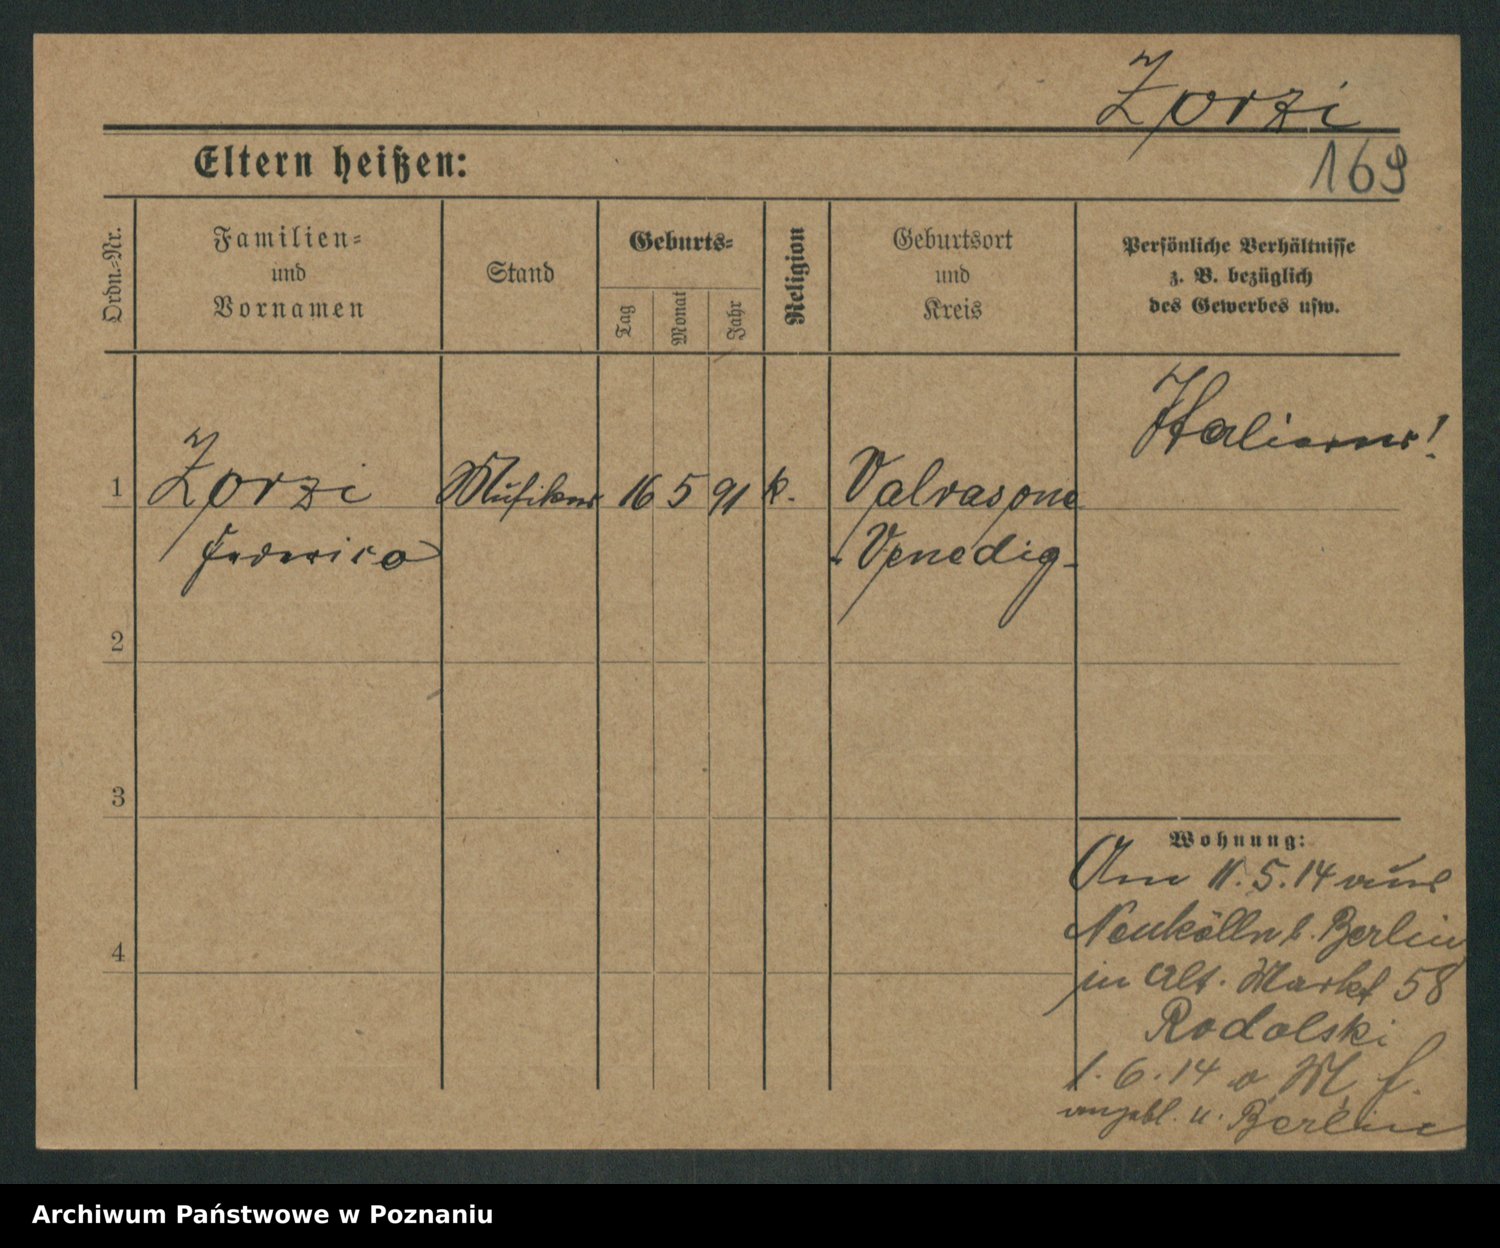 Zorzi
169
Eltern heißen:
Ordn.-Nr.
Familien-
und
Vornamen
Stand
Geburts-
Tag
Monat
Jahr
Religion
Geburtsort
und
Kreis
Persönliche Verhältnisse
z. B. bezüglich
des Gewerbes usw.
Italiener!
1 Zorzi Musiker 16 5 91 k. Valvasone
Federico - Venedig -
2
3
4
Wohnung:
Am 11.5.14 aus
Neukölln b. Berlin
in Alt. Markt 58
Rodolski
1.6.14 o. M. f.
angebl. n. Berlin
Archiwum Państwowe w Poznaniu